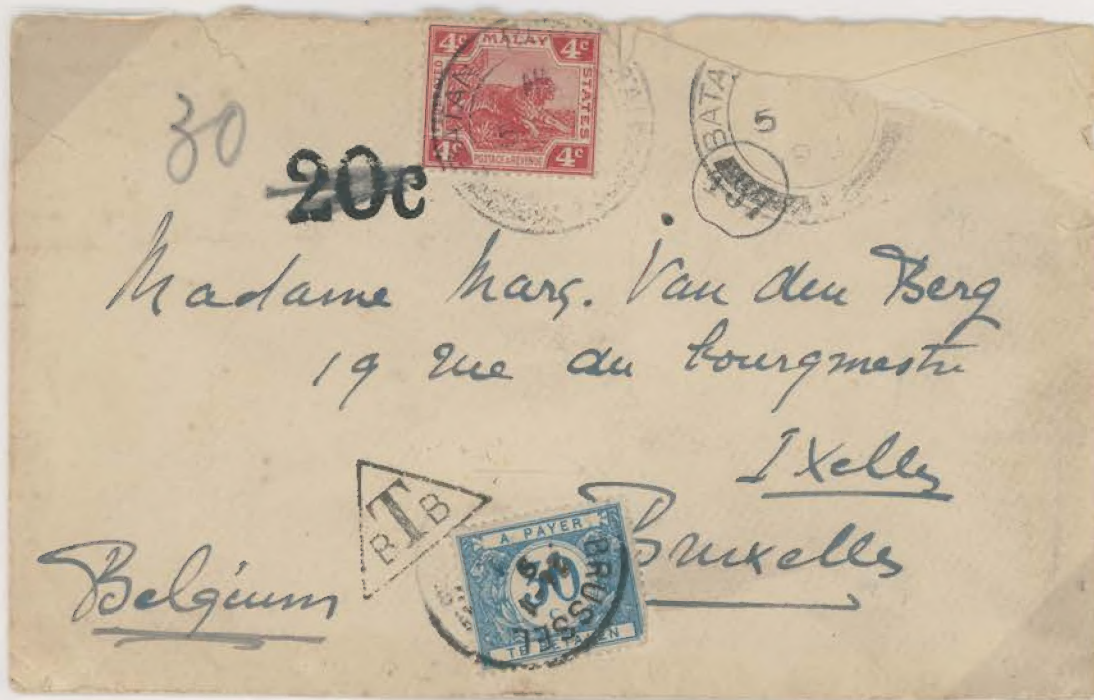 4c MALAY 4c
STATES
4c POSTAGE & REVENUE 4c
BATA
5
30
20c
Madame Marg. Van den Berg
19 rue du bourgmestre
Ixelles
Bruxelles
Belgium
T
B B
A PAYER
30
TE BETALEN
BRUSSEL